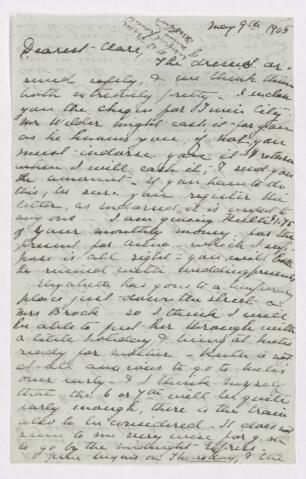 May 9th 1905
Dearest Clare,
The dresses ar-
rived safely, & I think them
both extremely pretty – I inclose
you the cheque for
Mr Wilder might cash it for you
as he knows you, if not you
must indorse your it & return
when I will cash it, & send you
the amount – If you have to do
this, be sure you register the
letter, as indorsed it is useful to
any one – I am giving
of your monthly money for the
present for which I sup-
pose is all right – you will
be ruined with wedding presents
has gone to a temporary
place just down the street
Mrs Brock so I think I will
be able to
a little holiday & being at
ready for mother – is not
at all anxious to go to
over early – & I think myself
that the 6 or 7th will be quite
early enough, there is the train
also to be considered. It does not
seem to me very wise for you
to go by the midnight express
on Thursday, & the